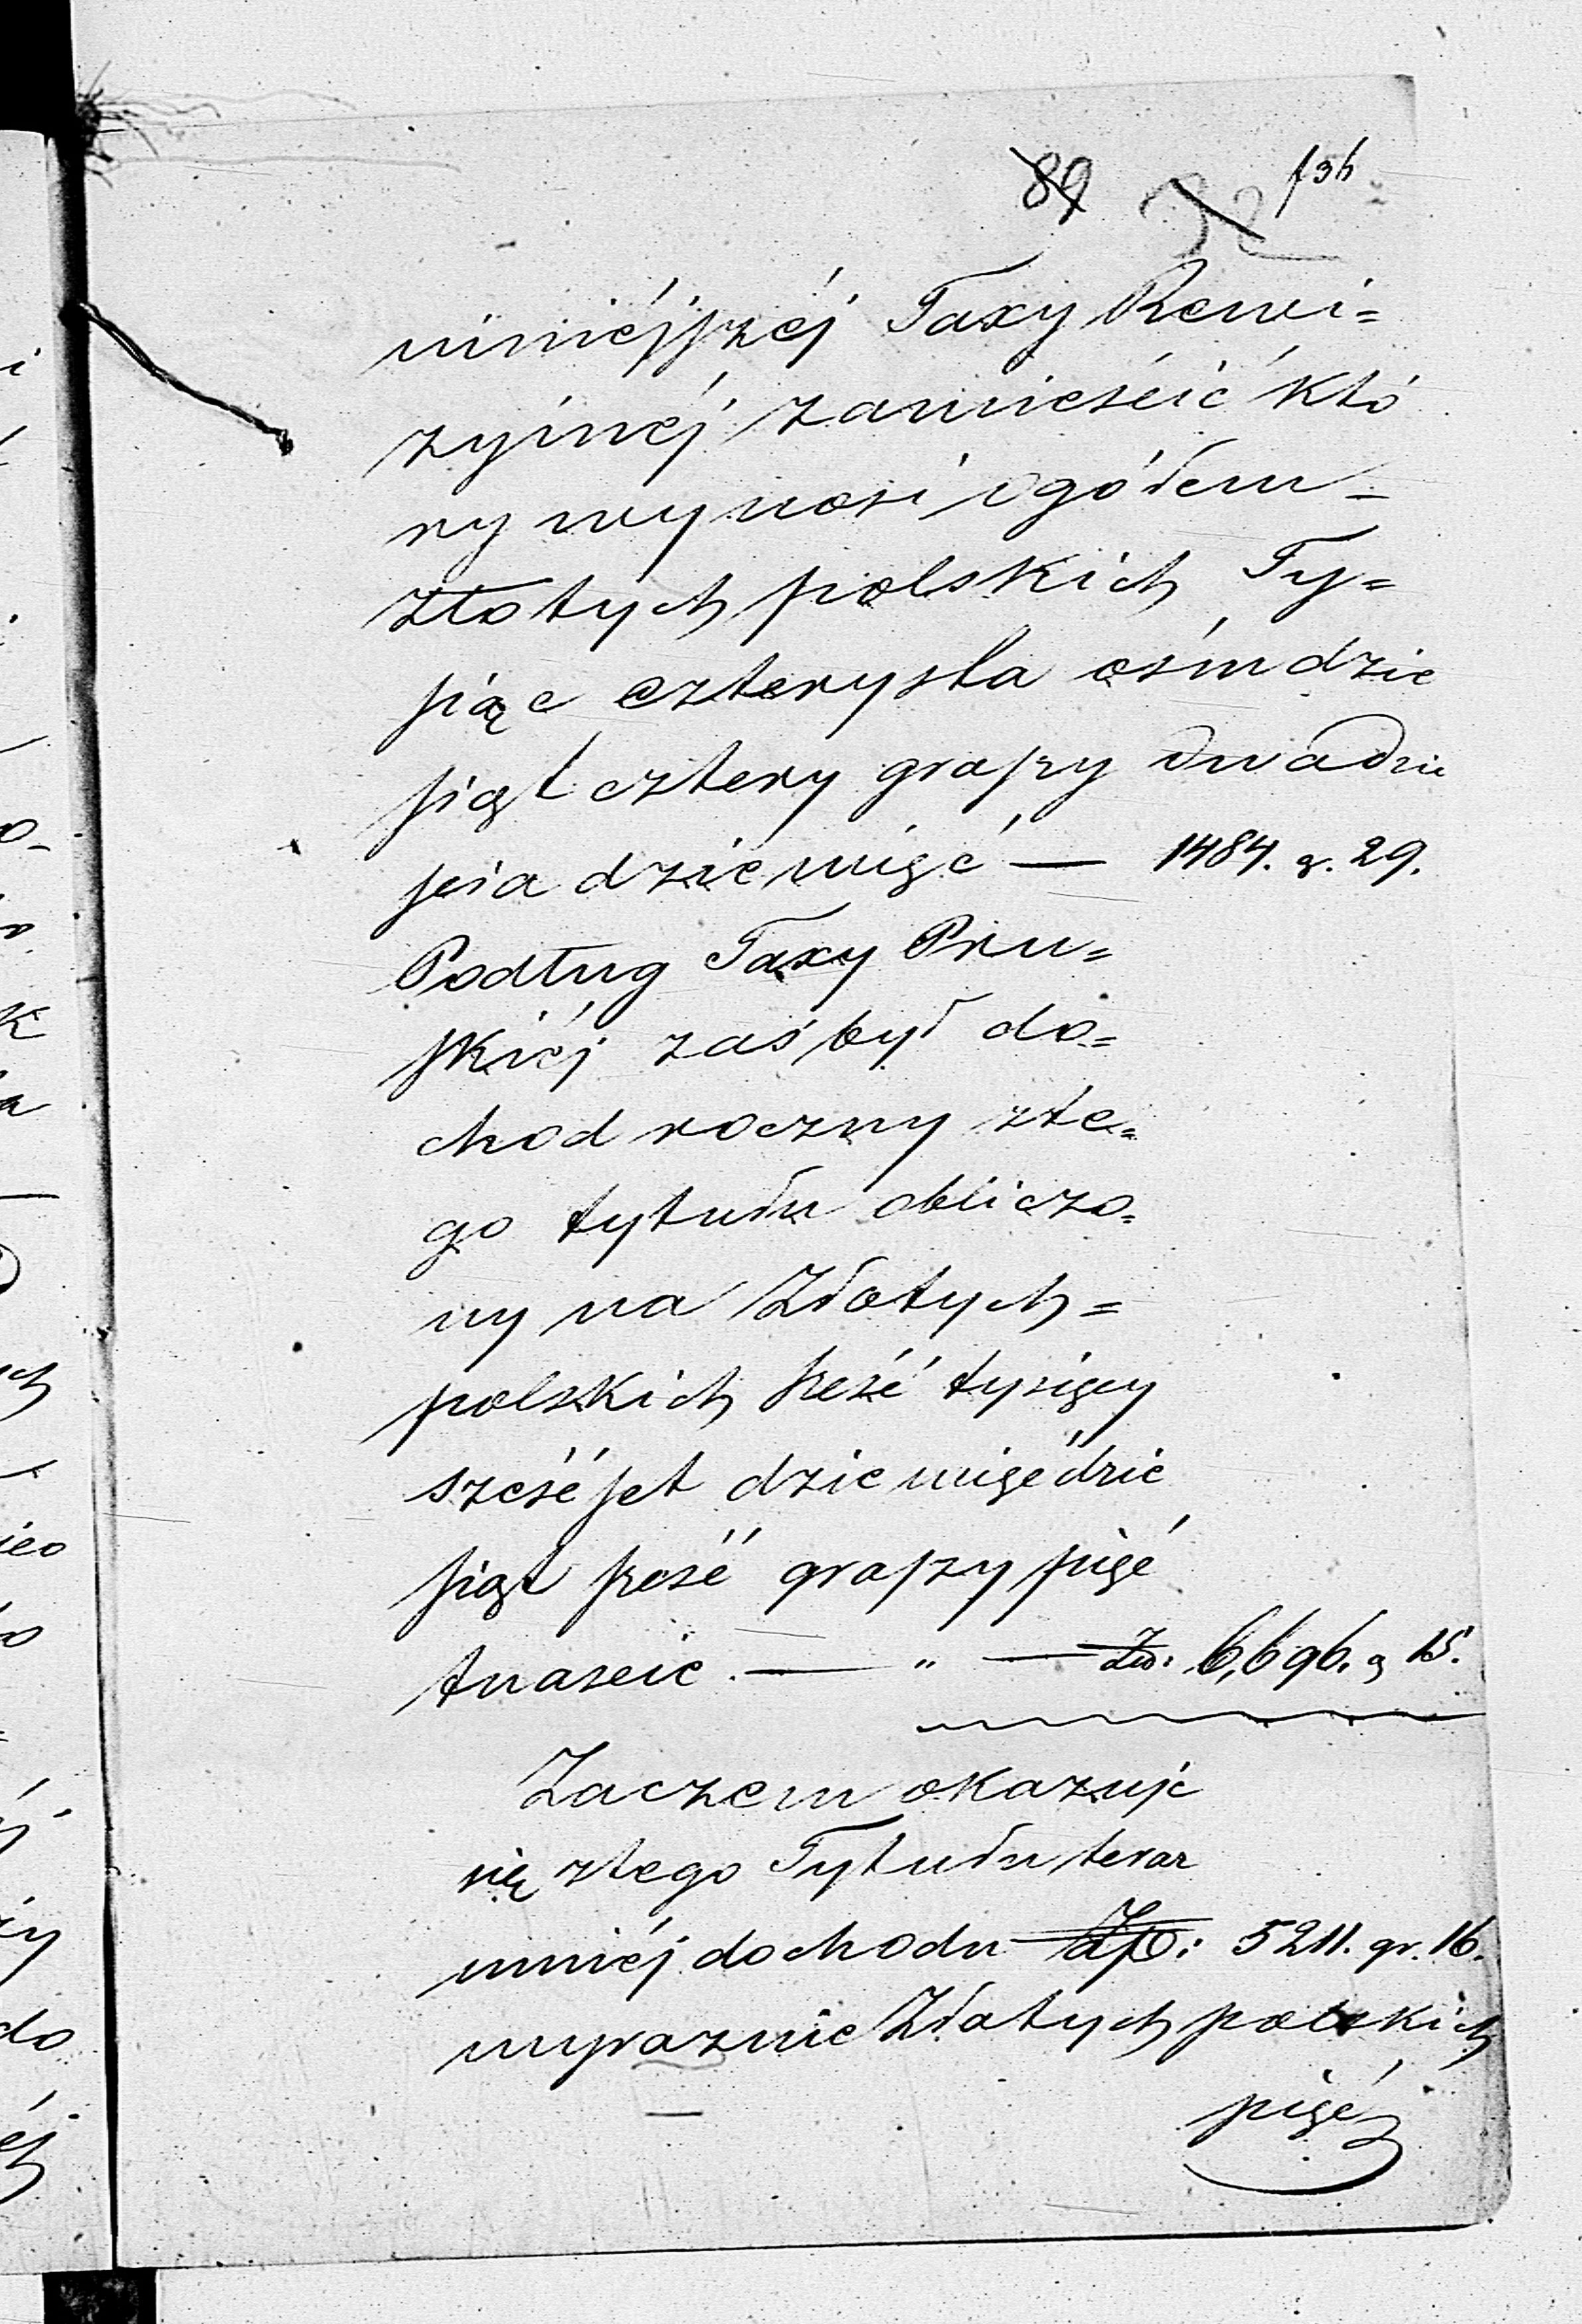 89 136
niniéjszéj Taxy Rewi=
zyinéj zamieścić któ
ry wynosi ogółem_
złotych polskich Ty=
siąc czterysta ośmdzie
siąt cztery groszy dwadzie
ścia dziewięć — 1484. g. 29.
Podług Taxy Pru=
skiéj zaś był do=
chod roczny zte=
go tytułu obliczo=
ny na Złotych=
polskich sześć tysięcy
sześćset dziewięćdzie
siąt sześć groszy pięt
tnaście. — „ — Zło: 6,696. g 15.
Zaczem okazuje
się ztego Tytułu teraz
mniéj dochodu Złp: 5211. gr. 16.
wyraznie Złotych polskich
pięć